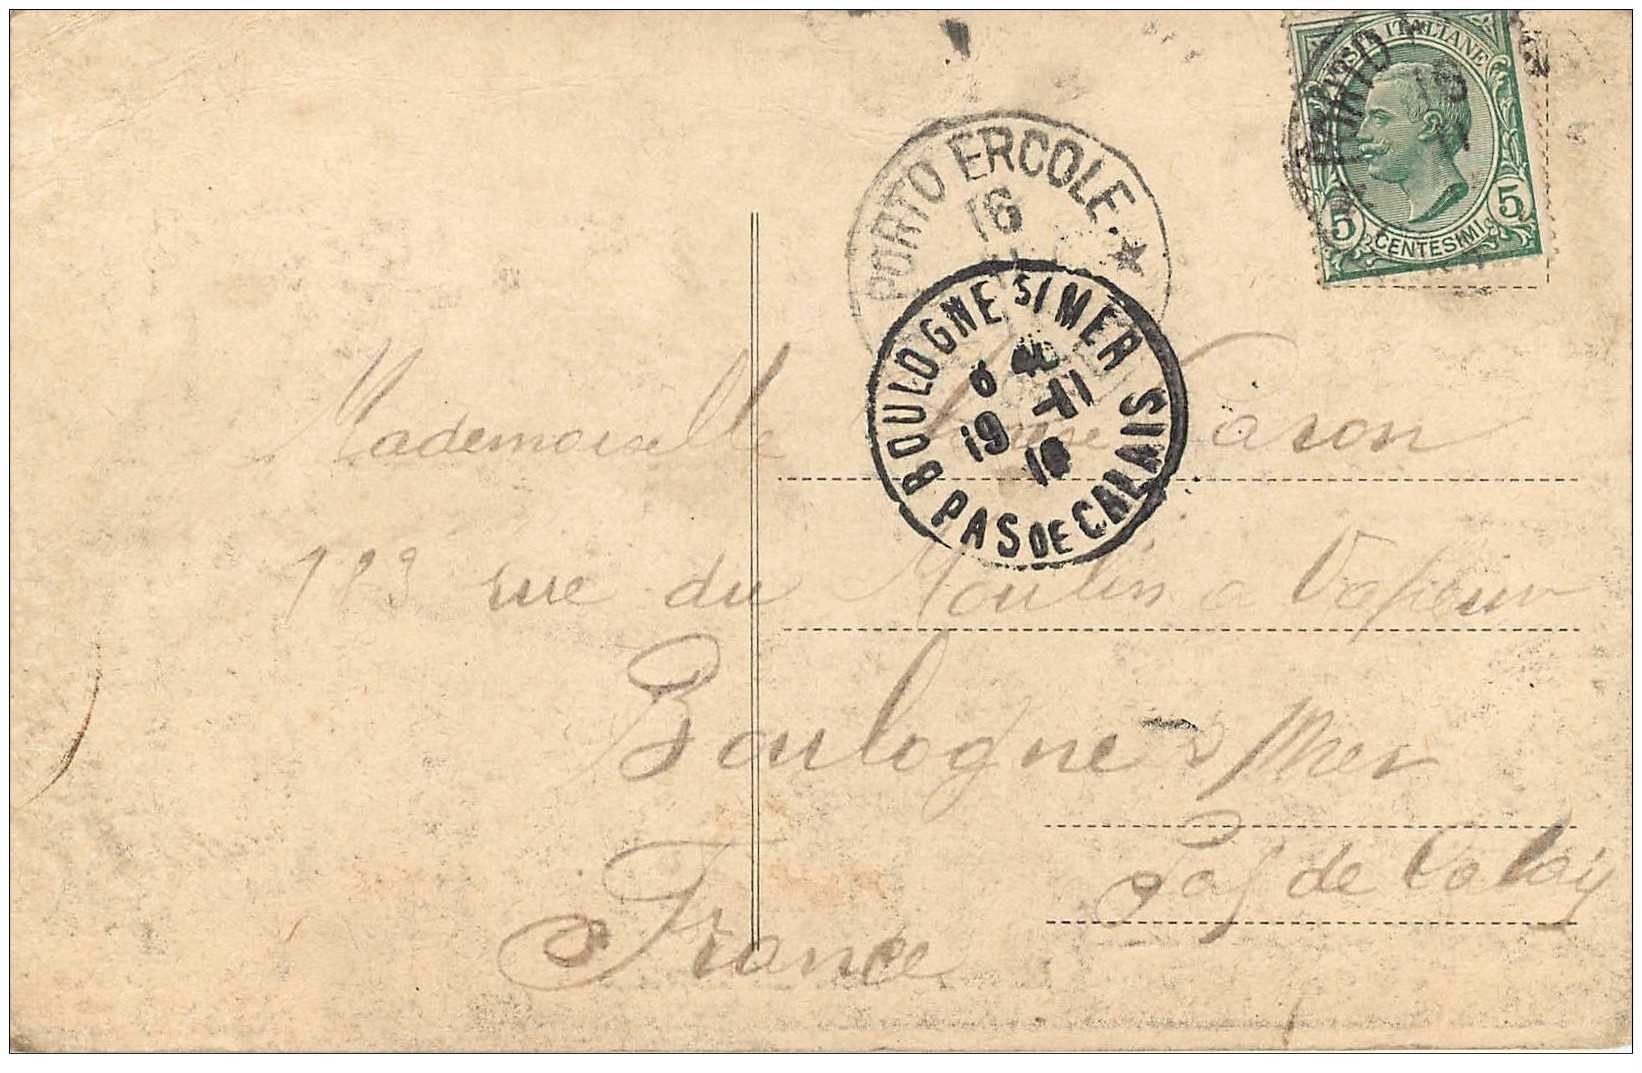 POSTE ITALIANE
5 CENTESIMI 5
PORTO ERCOLE
16
BOULOGNE S/MER
6
-11
19 10
PAS DE CALAIS
Mademoiselle Louise Caron
123 rue du Moulin a Vapeur
Boulogne s/Mer
Pas de Calais
France